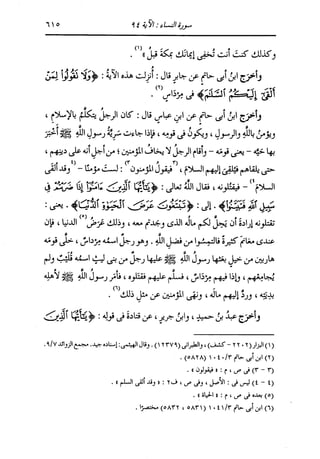 سورة النساء : الآية ٩٤
٦١٥
وكذلك كنتَ أنت تُخفِى إيمانَك بمكةَ قبلُ»(١).
وأخرَج ابنُ أبى حاتمٍ عن جابرٍ قال : أُنزِلت هذه الآيةُ : ﴿وَلَا نَقُولُوا لِمَنْ
أَلْقَىٰ إِلَيْكُمُ السَّلَامَ﴾ فى مِرْداسٍ(٢).
وأخرَج ابنُ أبى حاتمٍ عن ابنِ عباسٍ قال : كان الرجلُ يتكلَّمُ بالإسلامِ ،
ويؤمنُ باللَّهِ والرسولِ ، ويكونُ فى قومِه ، فإذا جاءت سَرِيَّةُ رسولِ اللَّهِ ﷺ أخبَر
بها حَيَّه - يعنى قومَه - وأقام الرجلُ لا يخافُ المؤمنين ؛ من أجلِ أنه على دينِهم ،
حتى يلقاهم فيُلقِىَ إليهم السلامَ ، (٣ فيقولُ المؤمنون ٣) : لستَ مؤمنًا - (٤ وقد ألقَى
السلامَ ٤) - فيقتلونه ، فقال اللَّهُ تعالى : ﴿يَا أَيُّهَا الَّذِينَ ءَامَنُوا إِذَا ضَرَبْتُمْ فِى
سَبِيلِ اللَّهِ فَتَبَيَّنُوا﴾ . إلى : ﴿تَبْتَغُونَ عَرَضَ الْحَيَوٰةِ الدُّنْيَا﴾ . يعنى :
تقتلونه إرادةَ أن يَحِلَّ لكم مالُه الذى وجَدتم معه ، وذلك عَرَضُ(٥) الدنيا ، فإن
عندى مغانمَ كثيرةً فالتمِسوا من فضلِ اللَّهِ . وهو رجلٌ اسمُه مِرْداسٌ ، خلَّى قومُه
هاربين من خيلٍ بعَثها رسولُ اللَّهِ ﷺ عليها رجلٌ من بنى ليثٍ اسمُه قُلَيبٌ ولم
يُجامِعْهم ، وإذا فيهم مِرْداسٌ ، فسلَّم عليهم فقتَلوه ، فأمَر رسولُ اللَّهِ ﷺ لأهلِه
بديتِه ، وردَّ إليهم مالَه ، ونهَى المؤمنين عن مثلِ ذلك(٦).
وأخرَج عبدُ بنُ حميدٍ ، وابنُ جريرٍ ، عن قتادةَ فى قولِه : ﴿يَا أَيُّهَا الَّذِينَ
(١) البزار (٢٢٠٢ - كشف) ، والطبرانى (١٢٣٧٩) . وقال الهيثمى : إسناده جيد . مجمع الزوائد ٩/٧ .
(٢) ابن أبى حاتم ١٠٤٠/٣ (٥٨٢٨) .
(٣ - ٣) فى ص ، م : « فيقولون » .
(٤ - ٤) ليس فى : الأصل ، وفى ص ، ف ٢ : « وقد ألقى السلم » .
(٥) بعده فى ص ، م : « الحياة » .
(٦) ابن أبى حاتم ١٠٤١/٣ (٥٨٣١، ٥٨٣٢) مختصرًا .